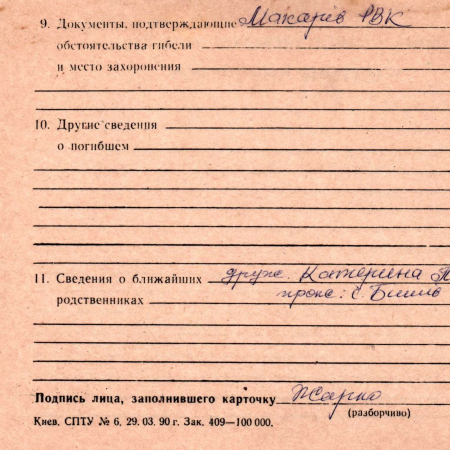 9. Документы, подтверждающие Макарів РВК
обстоятельства гибели
и место захоронения
10. Другие сведения
о погибшем
11. Сведения о ближайших друж. Катерина
родственниках прож: с. Бишів
Подпись лица, заполнившего карточку Жарко
(разборчиво)
Киев, СПТУ № 6, 29. 03. 90 г. Зак. 409—100 000.